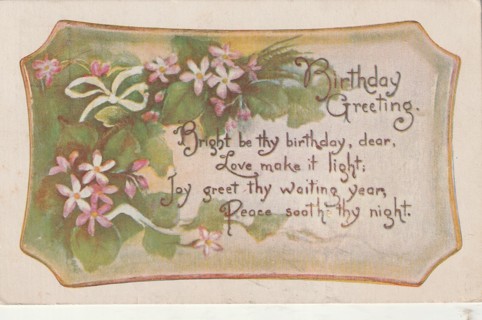 Birthday
Greeting.
Bright be thy birthday, dear,
Love make it light;
Joy greet thy waiting year,
Peace sooth thy night.